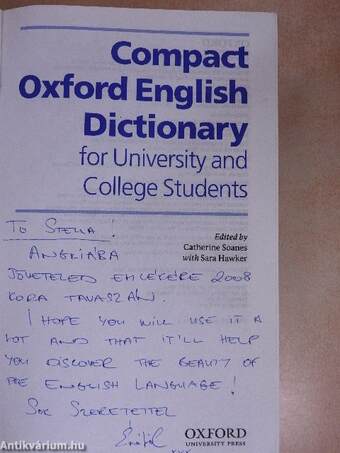 Compact
Oxford English
Dictionary
for University and
College Students
Edited by
Catherine Soanes
with Sara Hawker
To Stella!
ANGLIÁBA
JÖVETELED EMLÉKÉRE 2008
KORA TAVASZÁN.
I HOPE YOU WILL USE IT A
LOT AND THAT IT'LL HELP
YOU DISCOVER THE BEAUTY OF
THE ENGLISH LANGUAGE!
SOK SZERETETTEL
OXFORD
UNIVERSITY PRESS
Antikvárium.hu